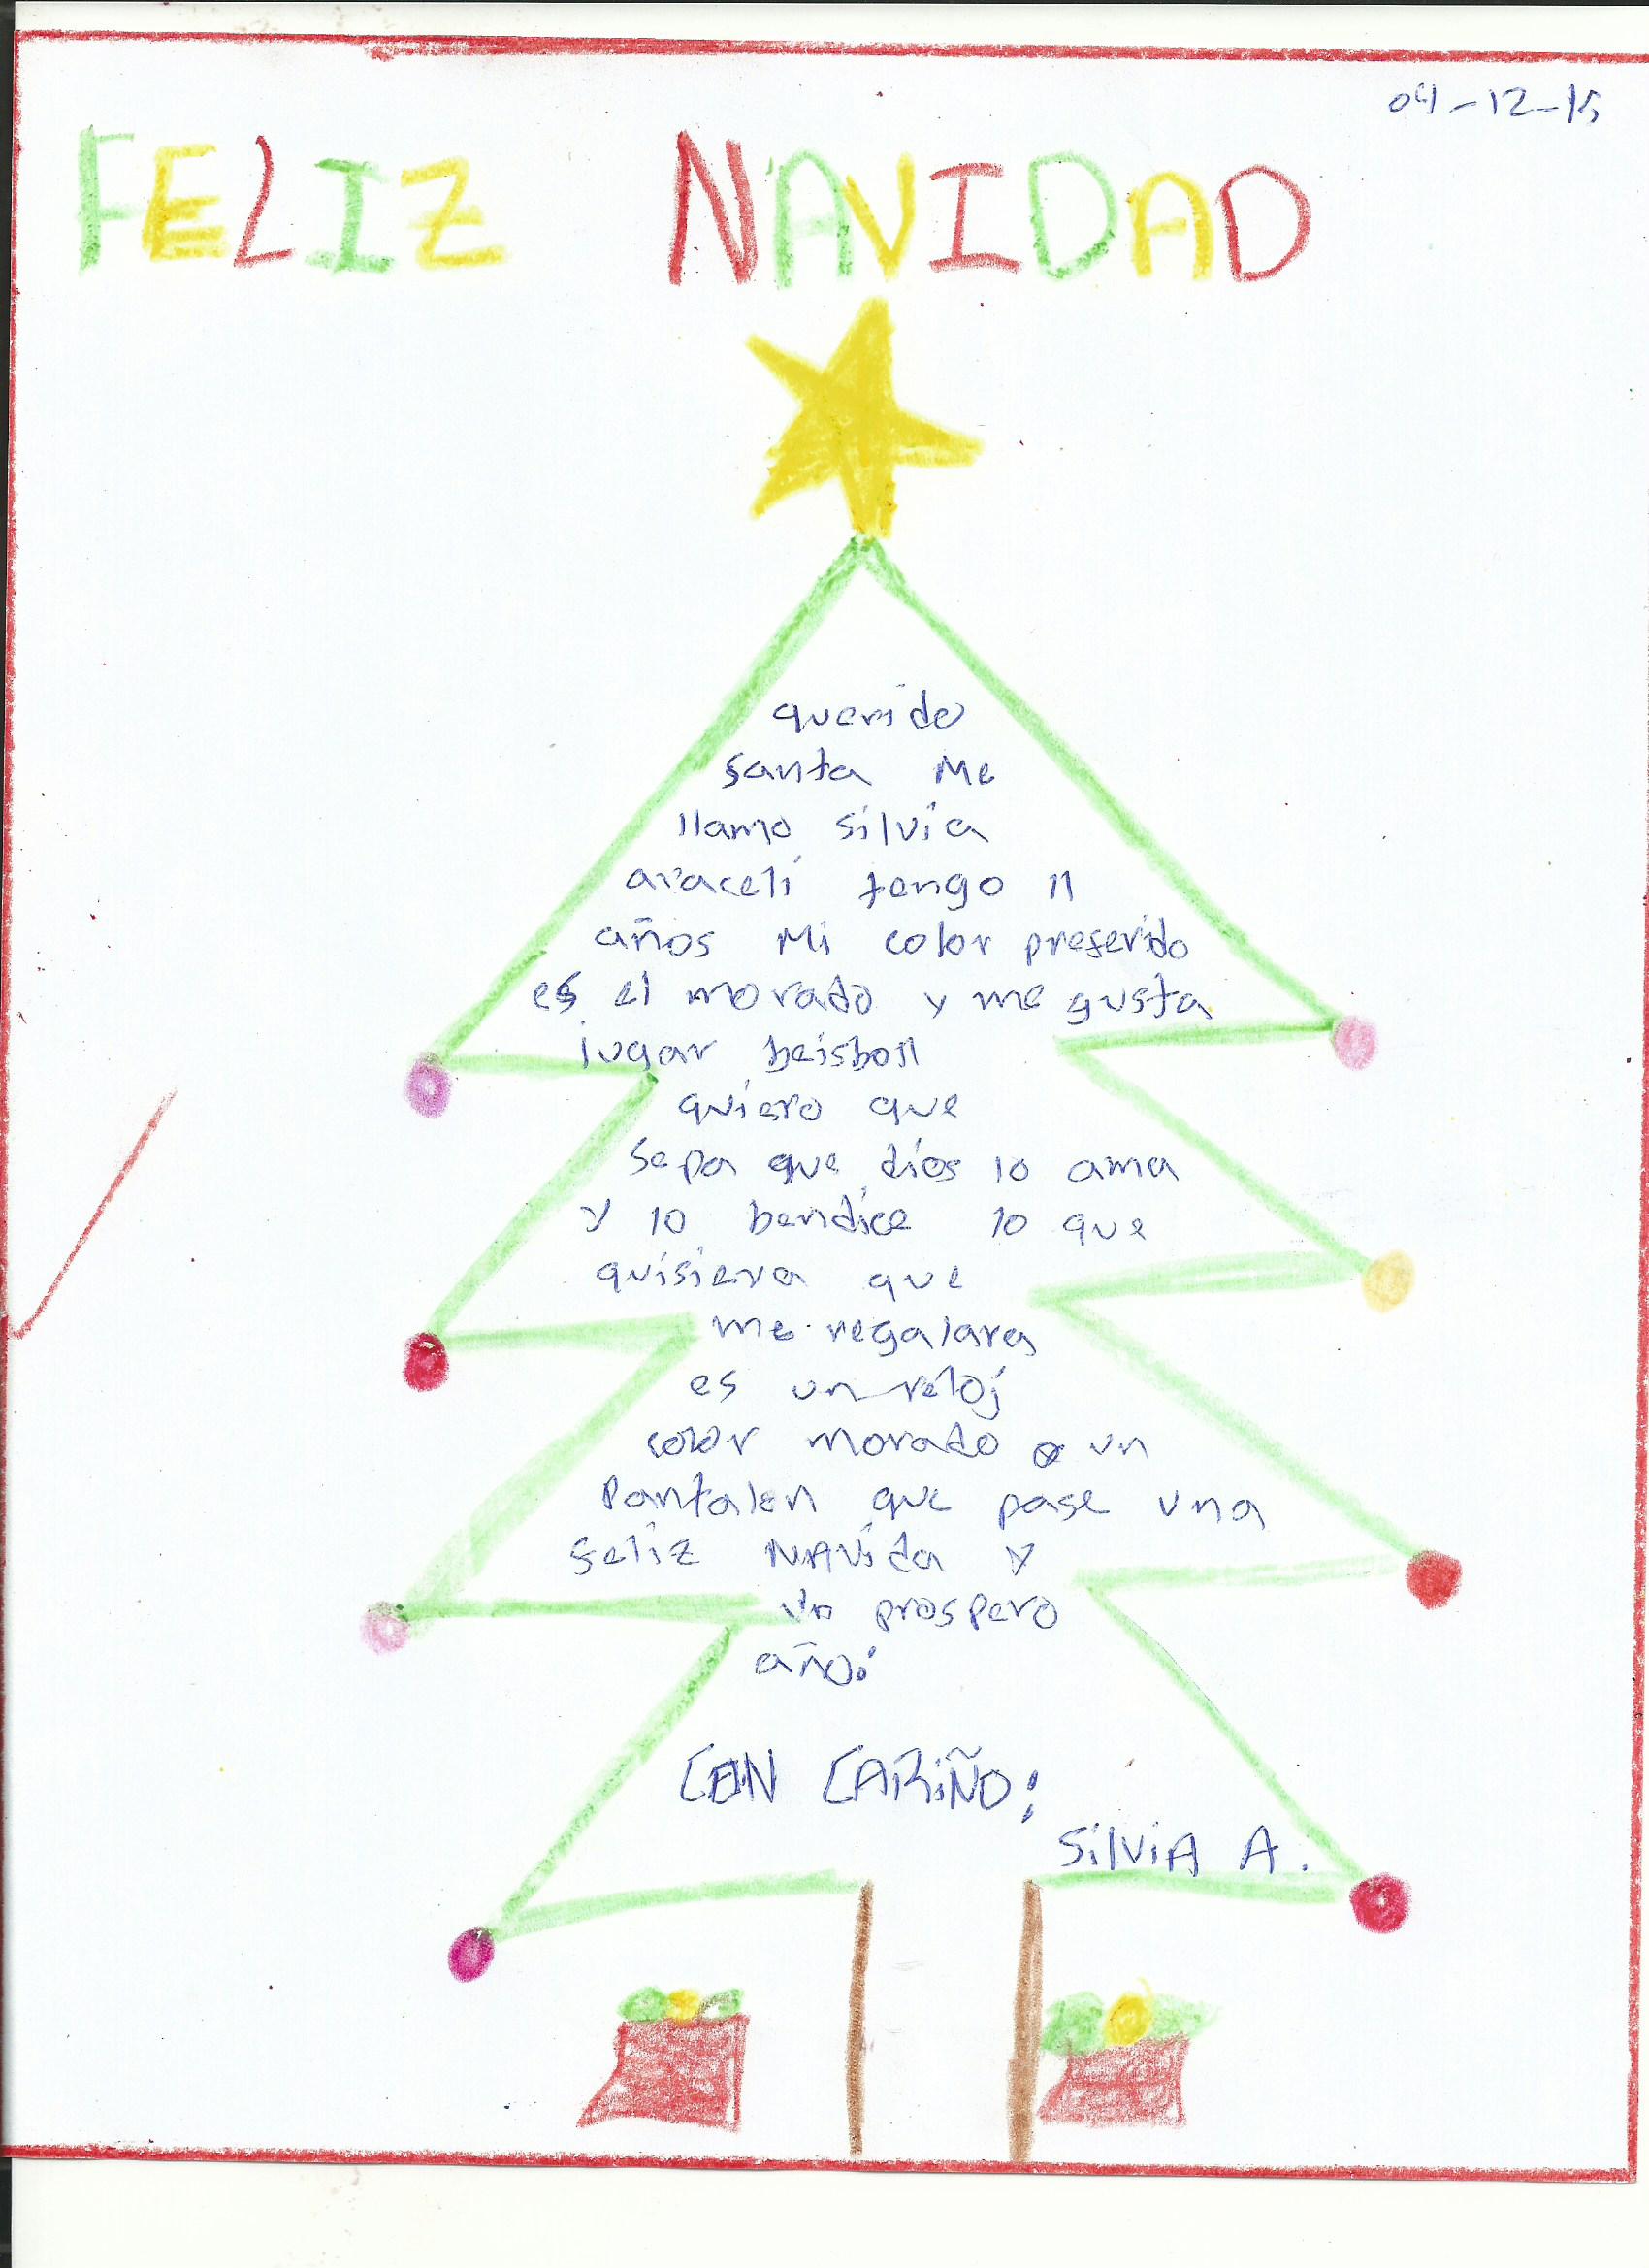 04-12-15
FELIZ NAVIDAD
querido
santa Me
llamo silvia
araceli tengo 11
años Mi color preferido
es el morado y me gusta
jugar beisboll
quiero que
sepa que dios lo ama
y lo bendice lo que
quisiera que
me regalara
es un reloj
color morado o un
Pantalon que pase una
feliz NAVida y
un prospero
año!
CON CARiÑO:
SilviA A.